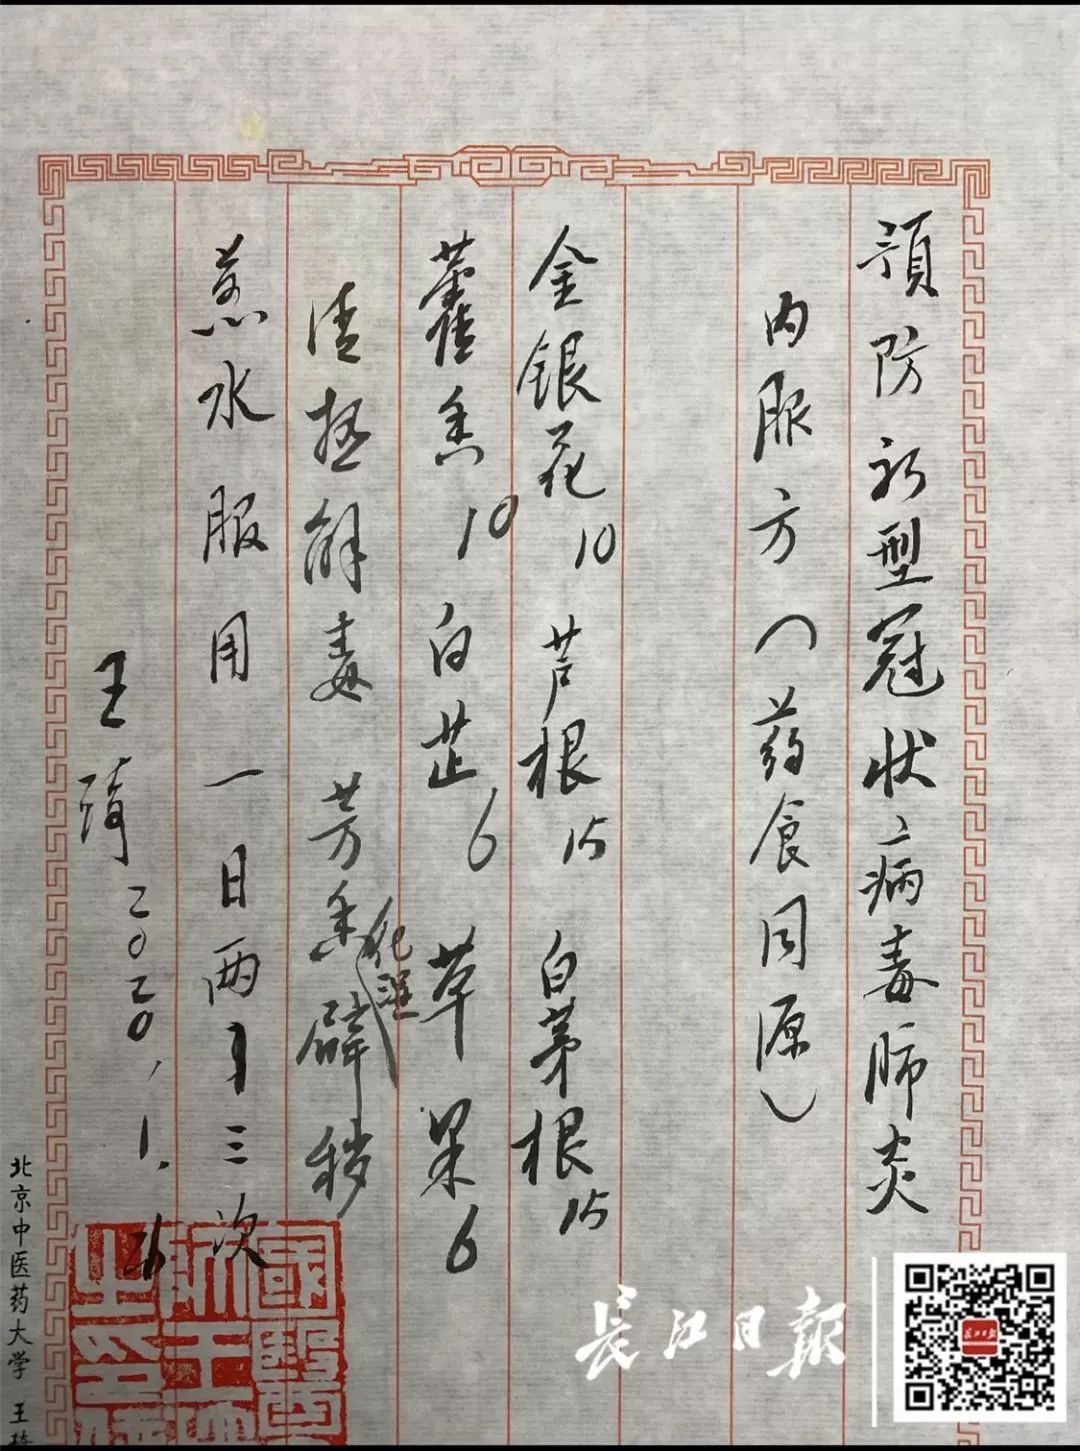 预防新型冠状病毒肺炎
内服方(药食同源)
金银花10 芦根15 白茅根15
藿香10 白芷6 草果6
清热解毒 芳香化湿辟秽
煎水服用一日两三次
王琦 二〇二〇,1.26
北京中医药大学 王琦
國醫
王
之印
长江日報